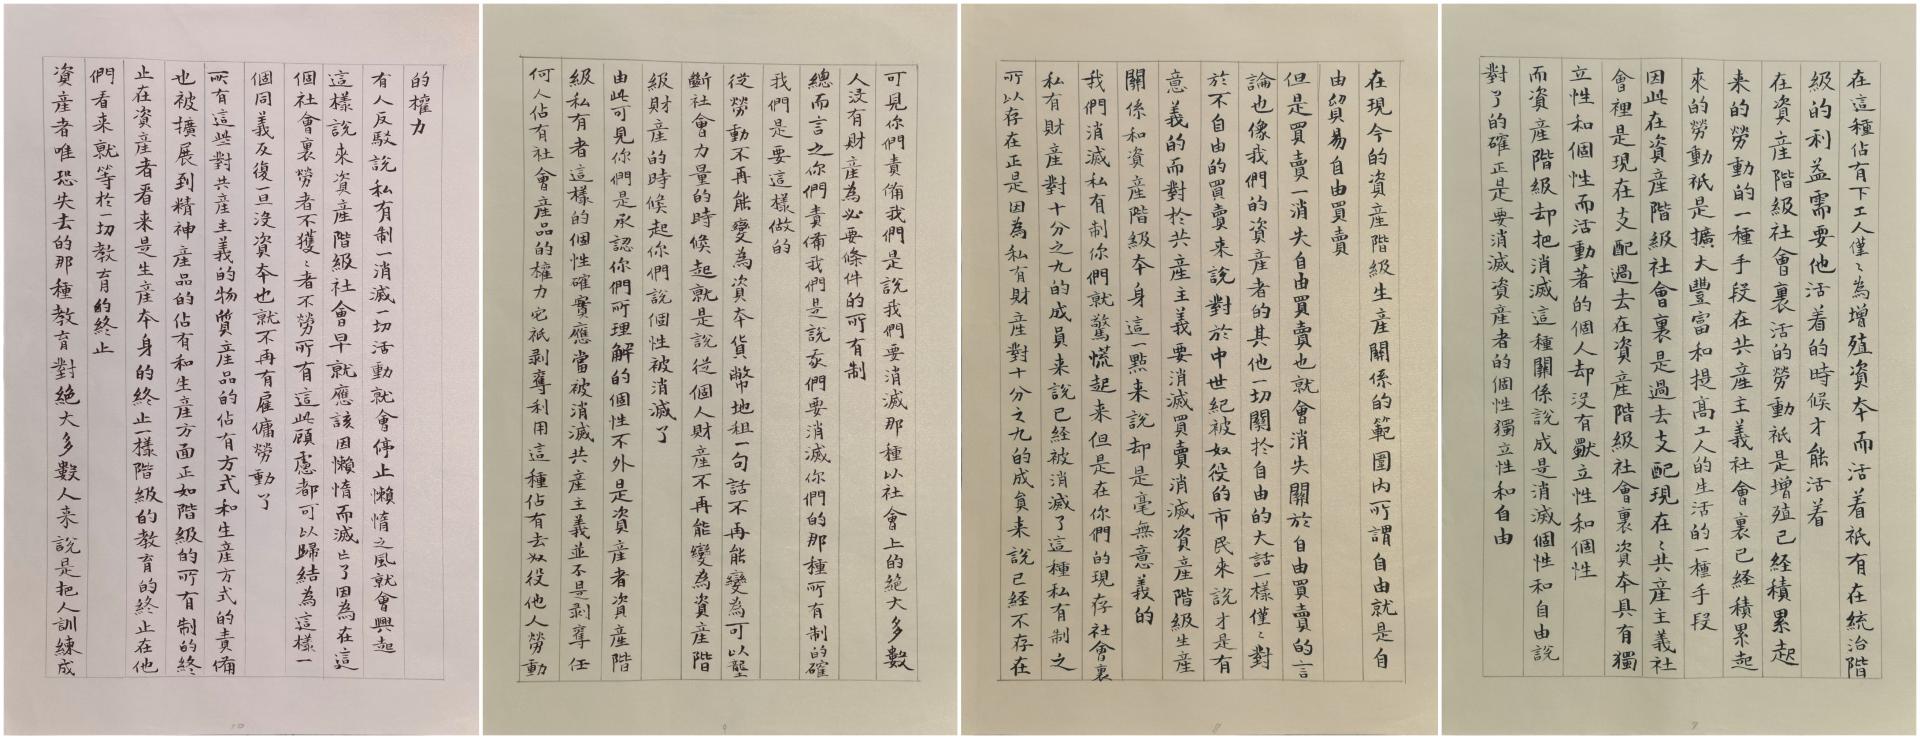 在這種佔有下工人僅〻為增殖資本而活着祇有在統治階
級的利益需要他活着的時候才能活着
在資産階級社會裏活的勞動祇是增殖已經積累起
来的勞動的一種手段在共産主義社會裏已經積累起
來的勞動祇是擴大豐富和提高工人的生活的一種手段
因此在資産階級社會裏是過去支配現在〻共産主義社
會裡是現在支配過去在資産階級社會裏資本具有獨
立性和個性而活動著的個人却沒有獸立性和個性
而資産階級却把消滅這種關係說成是消滅個性和自由說
對了的確正是要消滅資産者的個性獨立性和自由
在現今的資産階級生産關係的範圍内所謂自由就是自
由貿易自由買賣
但是買賣一消失自由買賣也就會消失關於自由買賣的言
論也像我們的資産者的其他一切關於自由的大話一樣僅〻對
於不自由的買賣来說對於中世紀被奴役的市民来說才是有
意義的而對於共産主義要消滅買賣消滅資産階級生産
關係和資産階級本身這一點来說却是毫無意義的
我們消滅私有制你們就驚慌起来但是在你們的現存社會裏
私有財産對十分之九的成員来說已經被消滅了這種私有制之
所以存在正是因為私有財産對十分之九的成員来說已经不存在
可見你們責備我們是說我們要消滅那種以社會上的絕大多數
人沒有財産為必要條件的所有制
總而言之你們責備我們是說我們要消滅你們的那種所有制的確
我們是要這樣做的
從勞動不再能變為資本貨幣地租一句話不再能變為可以壟
斷社會力量的時候起就是說從個人財産不再能變為資産階
級財産的時候起你們說個性被消滅了
由此可見你們是承認你們所理解的個性不外是資産者資産階
級私有者這樣的個性確實應當被消滅共産主義並不是剥奪任
何人佔有社會産品的權力它祇剥奪利用這種佔有去奴役他人勞動
的權力
有人反駁說私有制一消滅一切活動就會停止懶惰之風就會興起
這樣說来資産階級社會早就應該因懶惰而滅亡了因為在這
個社會裏勞者不獲〻者不勞所有這些顧慮都可以歸結為這樣一
個同義反復一旦沒資本也就不再有雇傭勞動了
所有這些對共産主義的物質産品的佔有方式和生産方式的責備
也被擴展到精神産品的佔有和生産方面正如階級的所有制的終
止在資産者看来是生産本身的終止一樣階級的教育的終止在他
們看来就等於一切教育的終止
資産者唯恐失去的那種教育對絕大多數人来說是把人訓練成